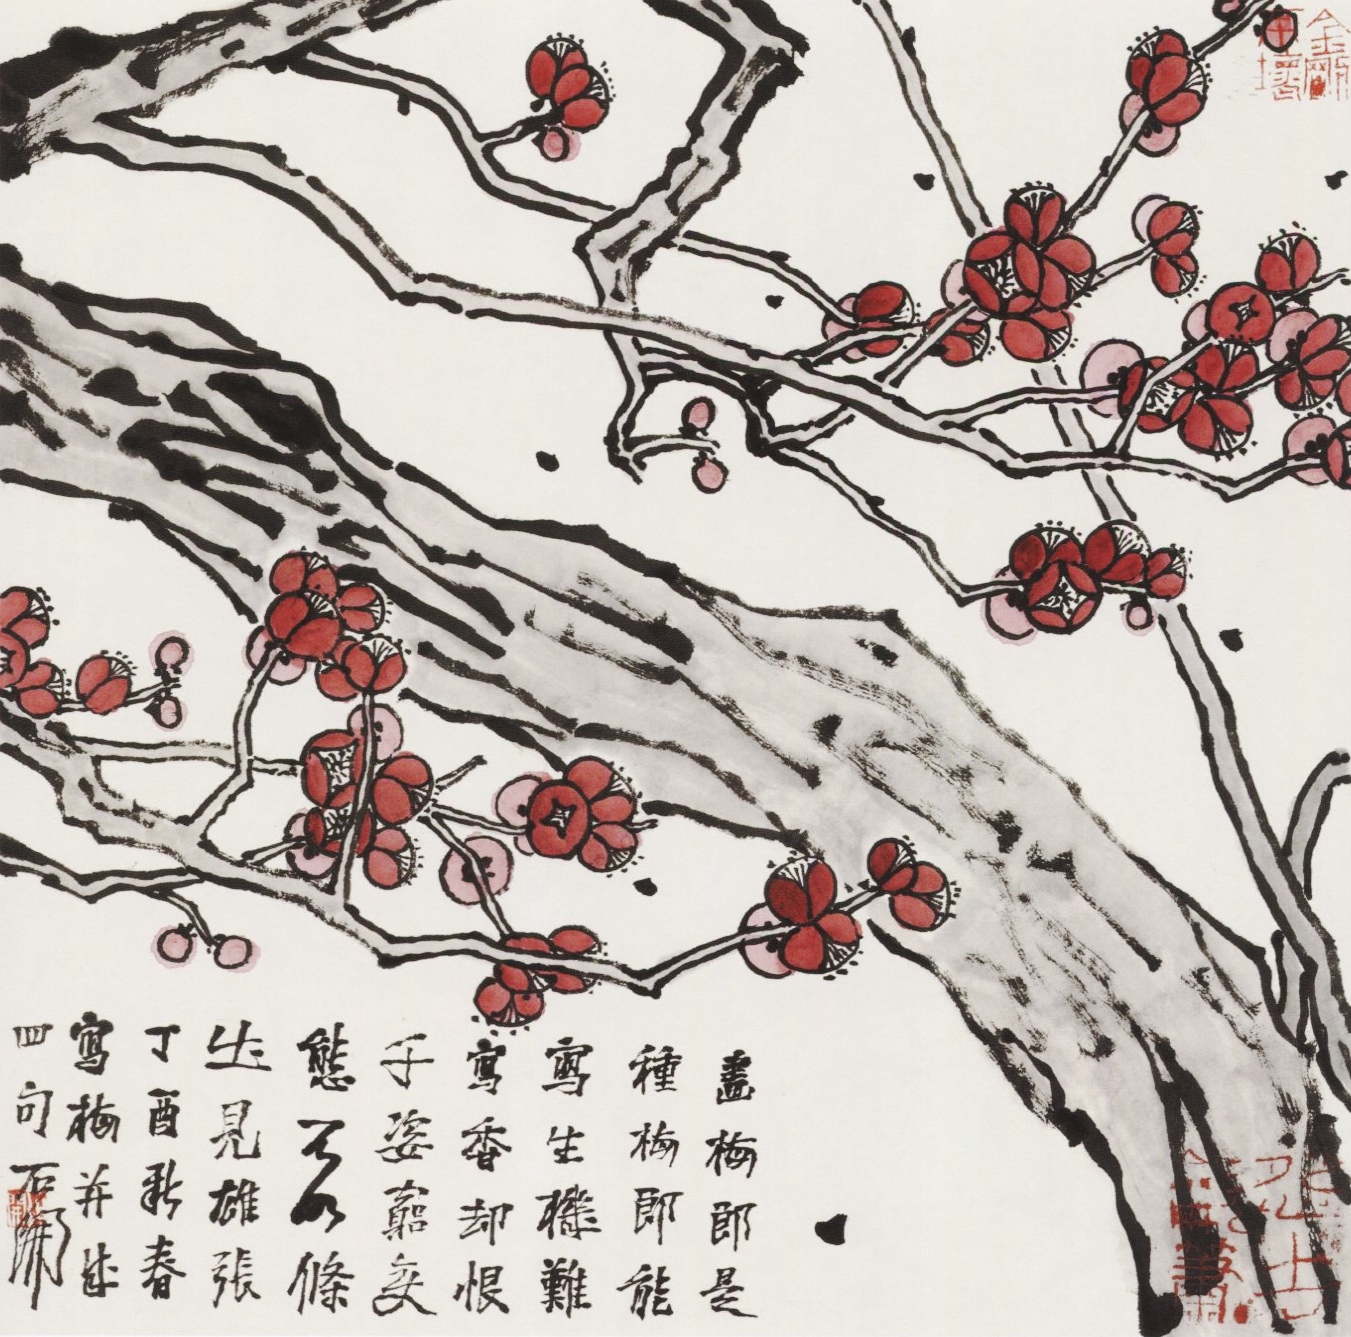 畫梅郎是
種梅郎能
寫生機難
寫香却恨
千姿窮變
態
條
生見雄張
丁酉新春
寫梅并成
四句石開